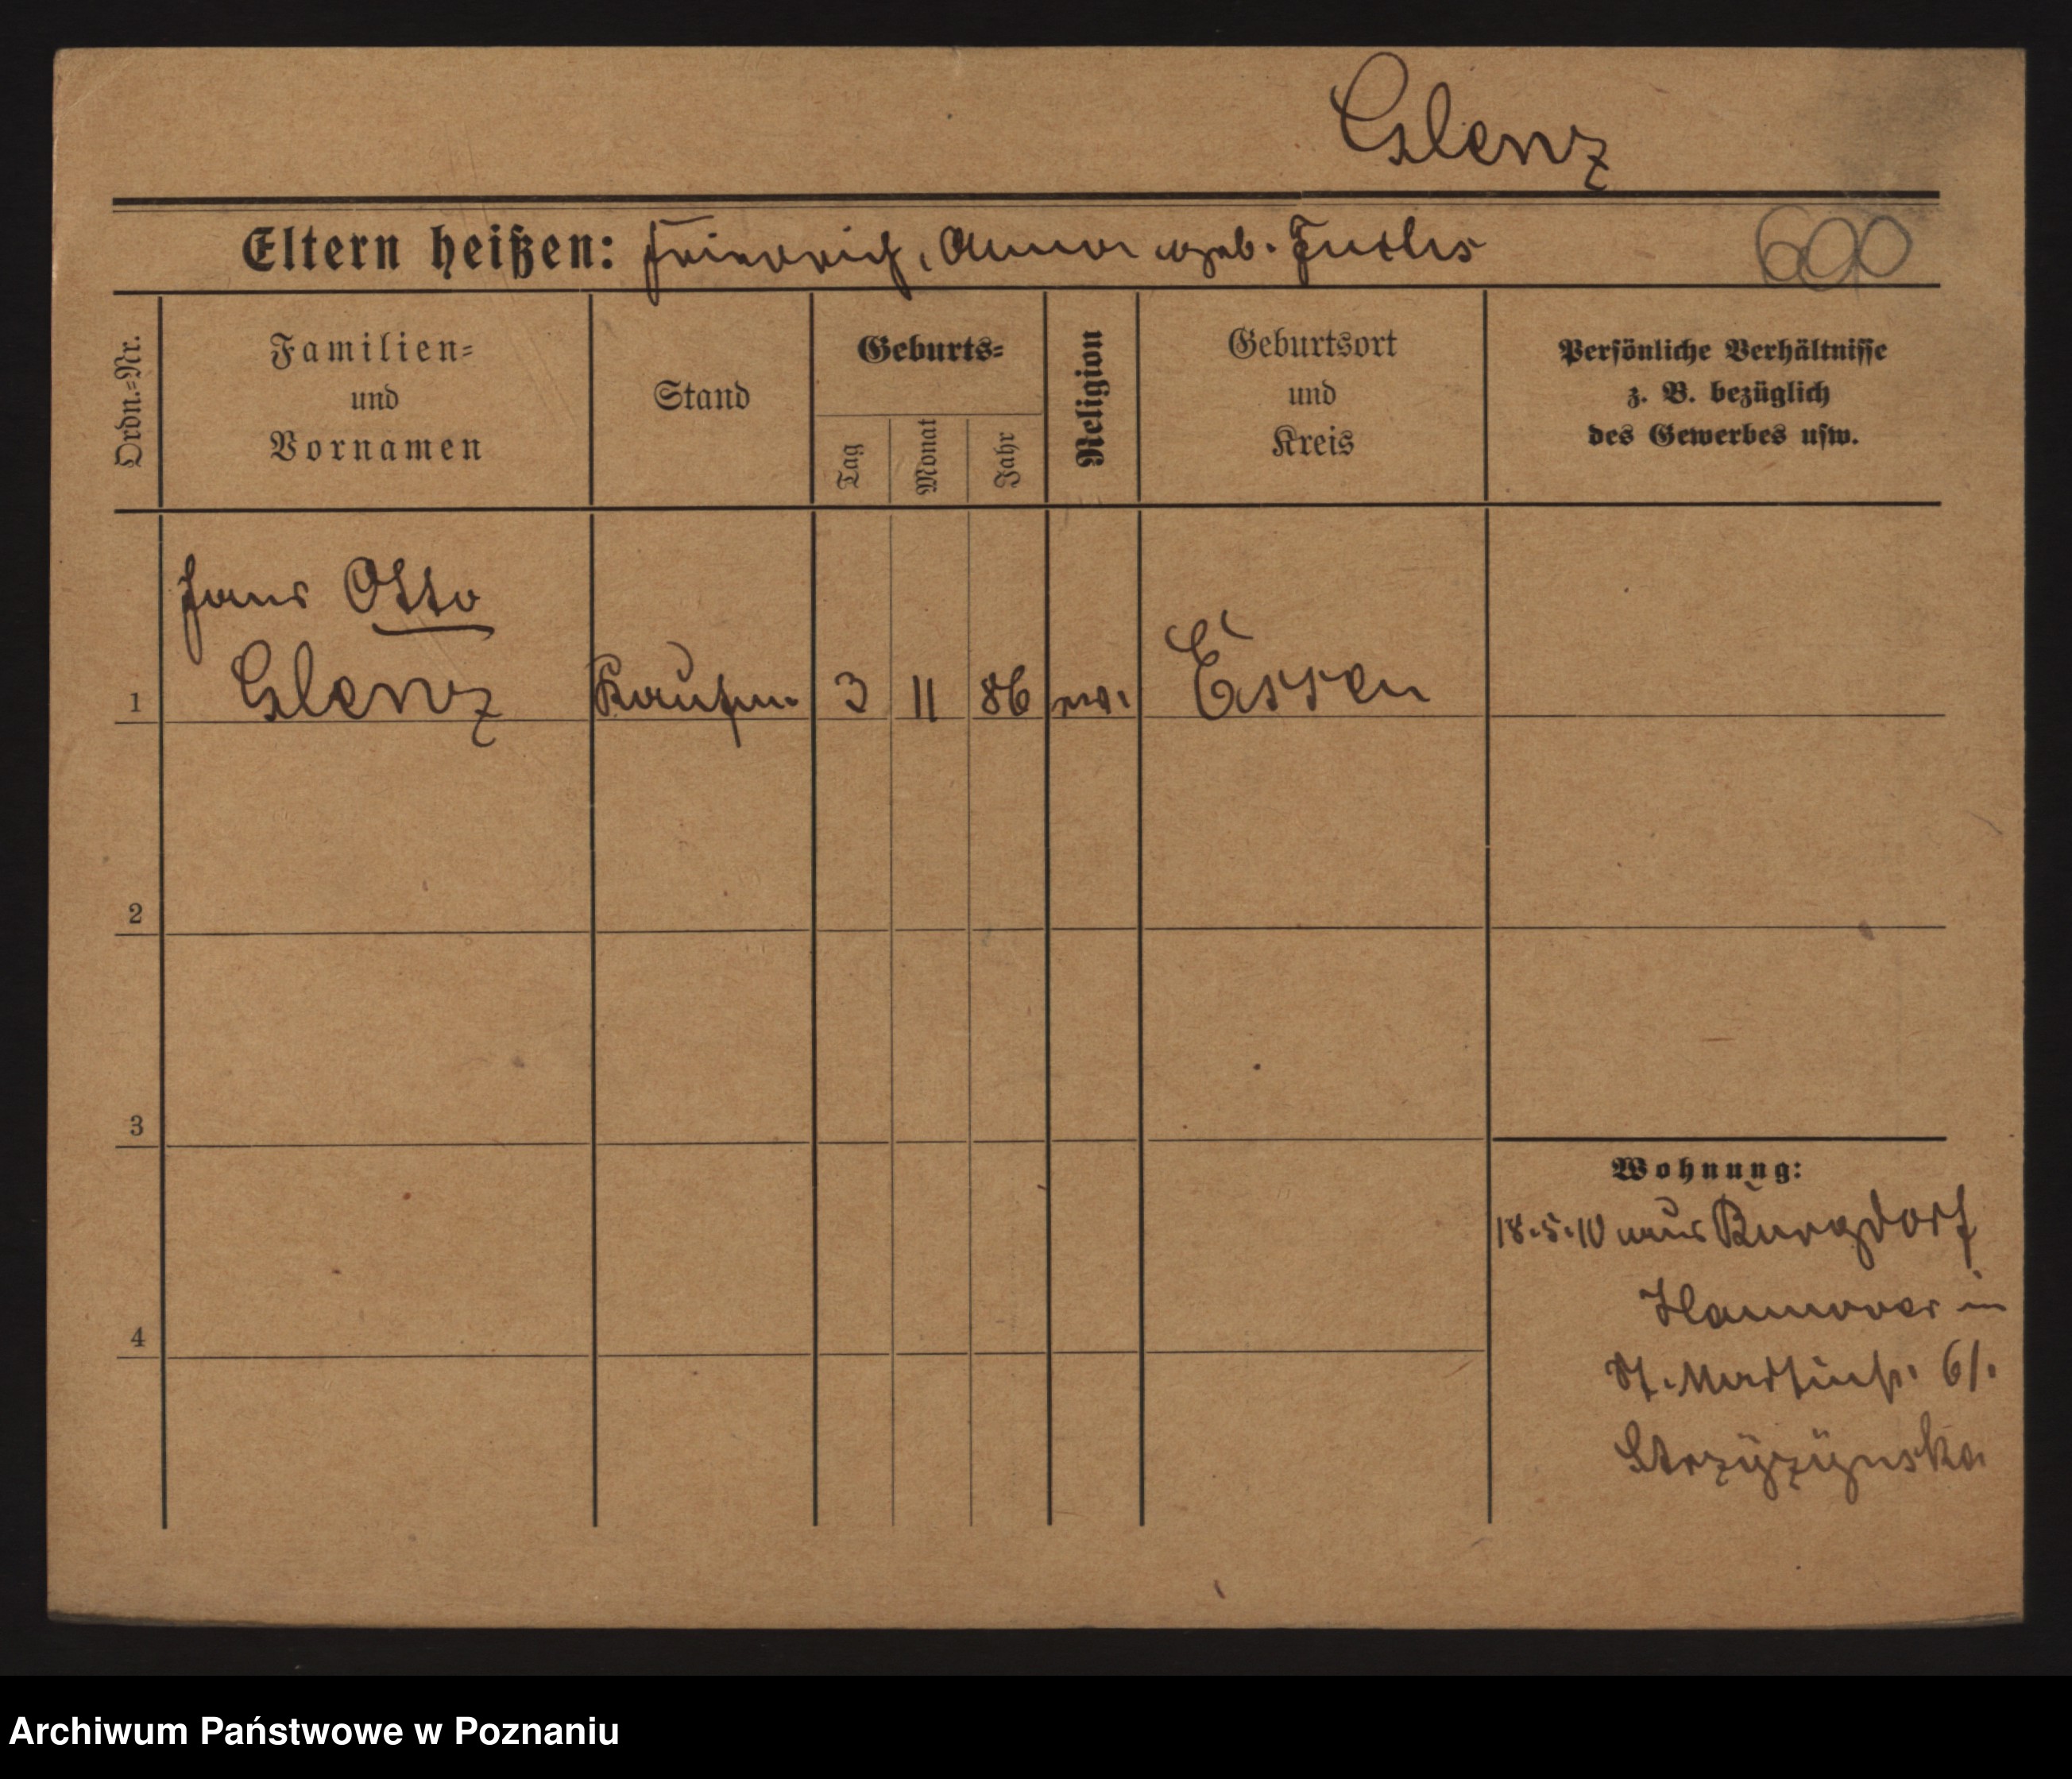 Glenz
Eltern heißen: Friedrich, Anna geb. Fuchs
690
Ordn.=Nr.
Familien=
und
Vornamen
Stand
Geburts=
Tag
Monat
Jahr
Religion
Geburtsort
und
Kreis
Persönliche Verhältnisse
z. B. bezüglich
des Gewerbes usw.
Hans Otto
1 Glenz Kaufm. 3 11 86 ev. Essen
2
3
4
Wohnung:
18.5.10 aus Burgdorf
Hannover in
St. Martinstr. 61.
Strzyzynska
Archiwum Państwowe w Poznaniu